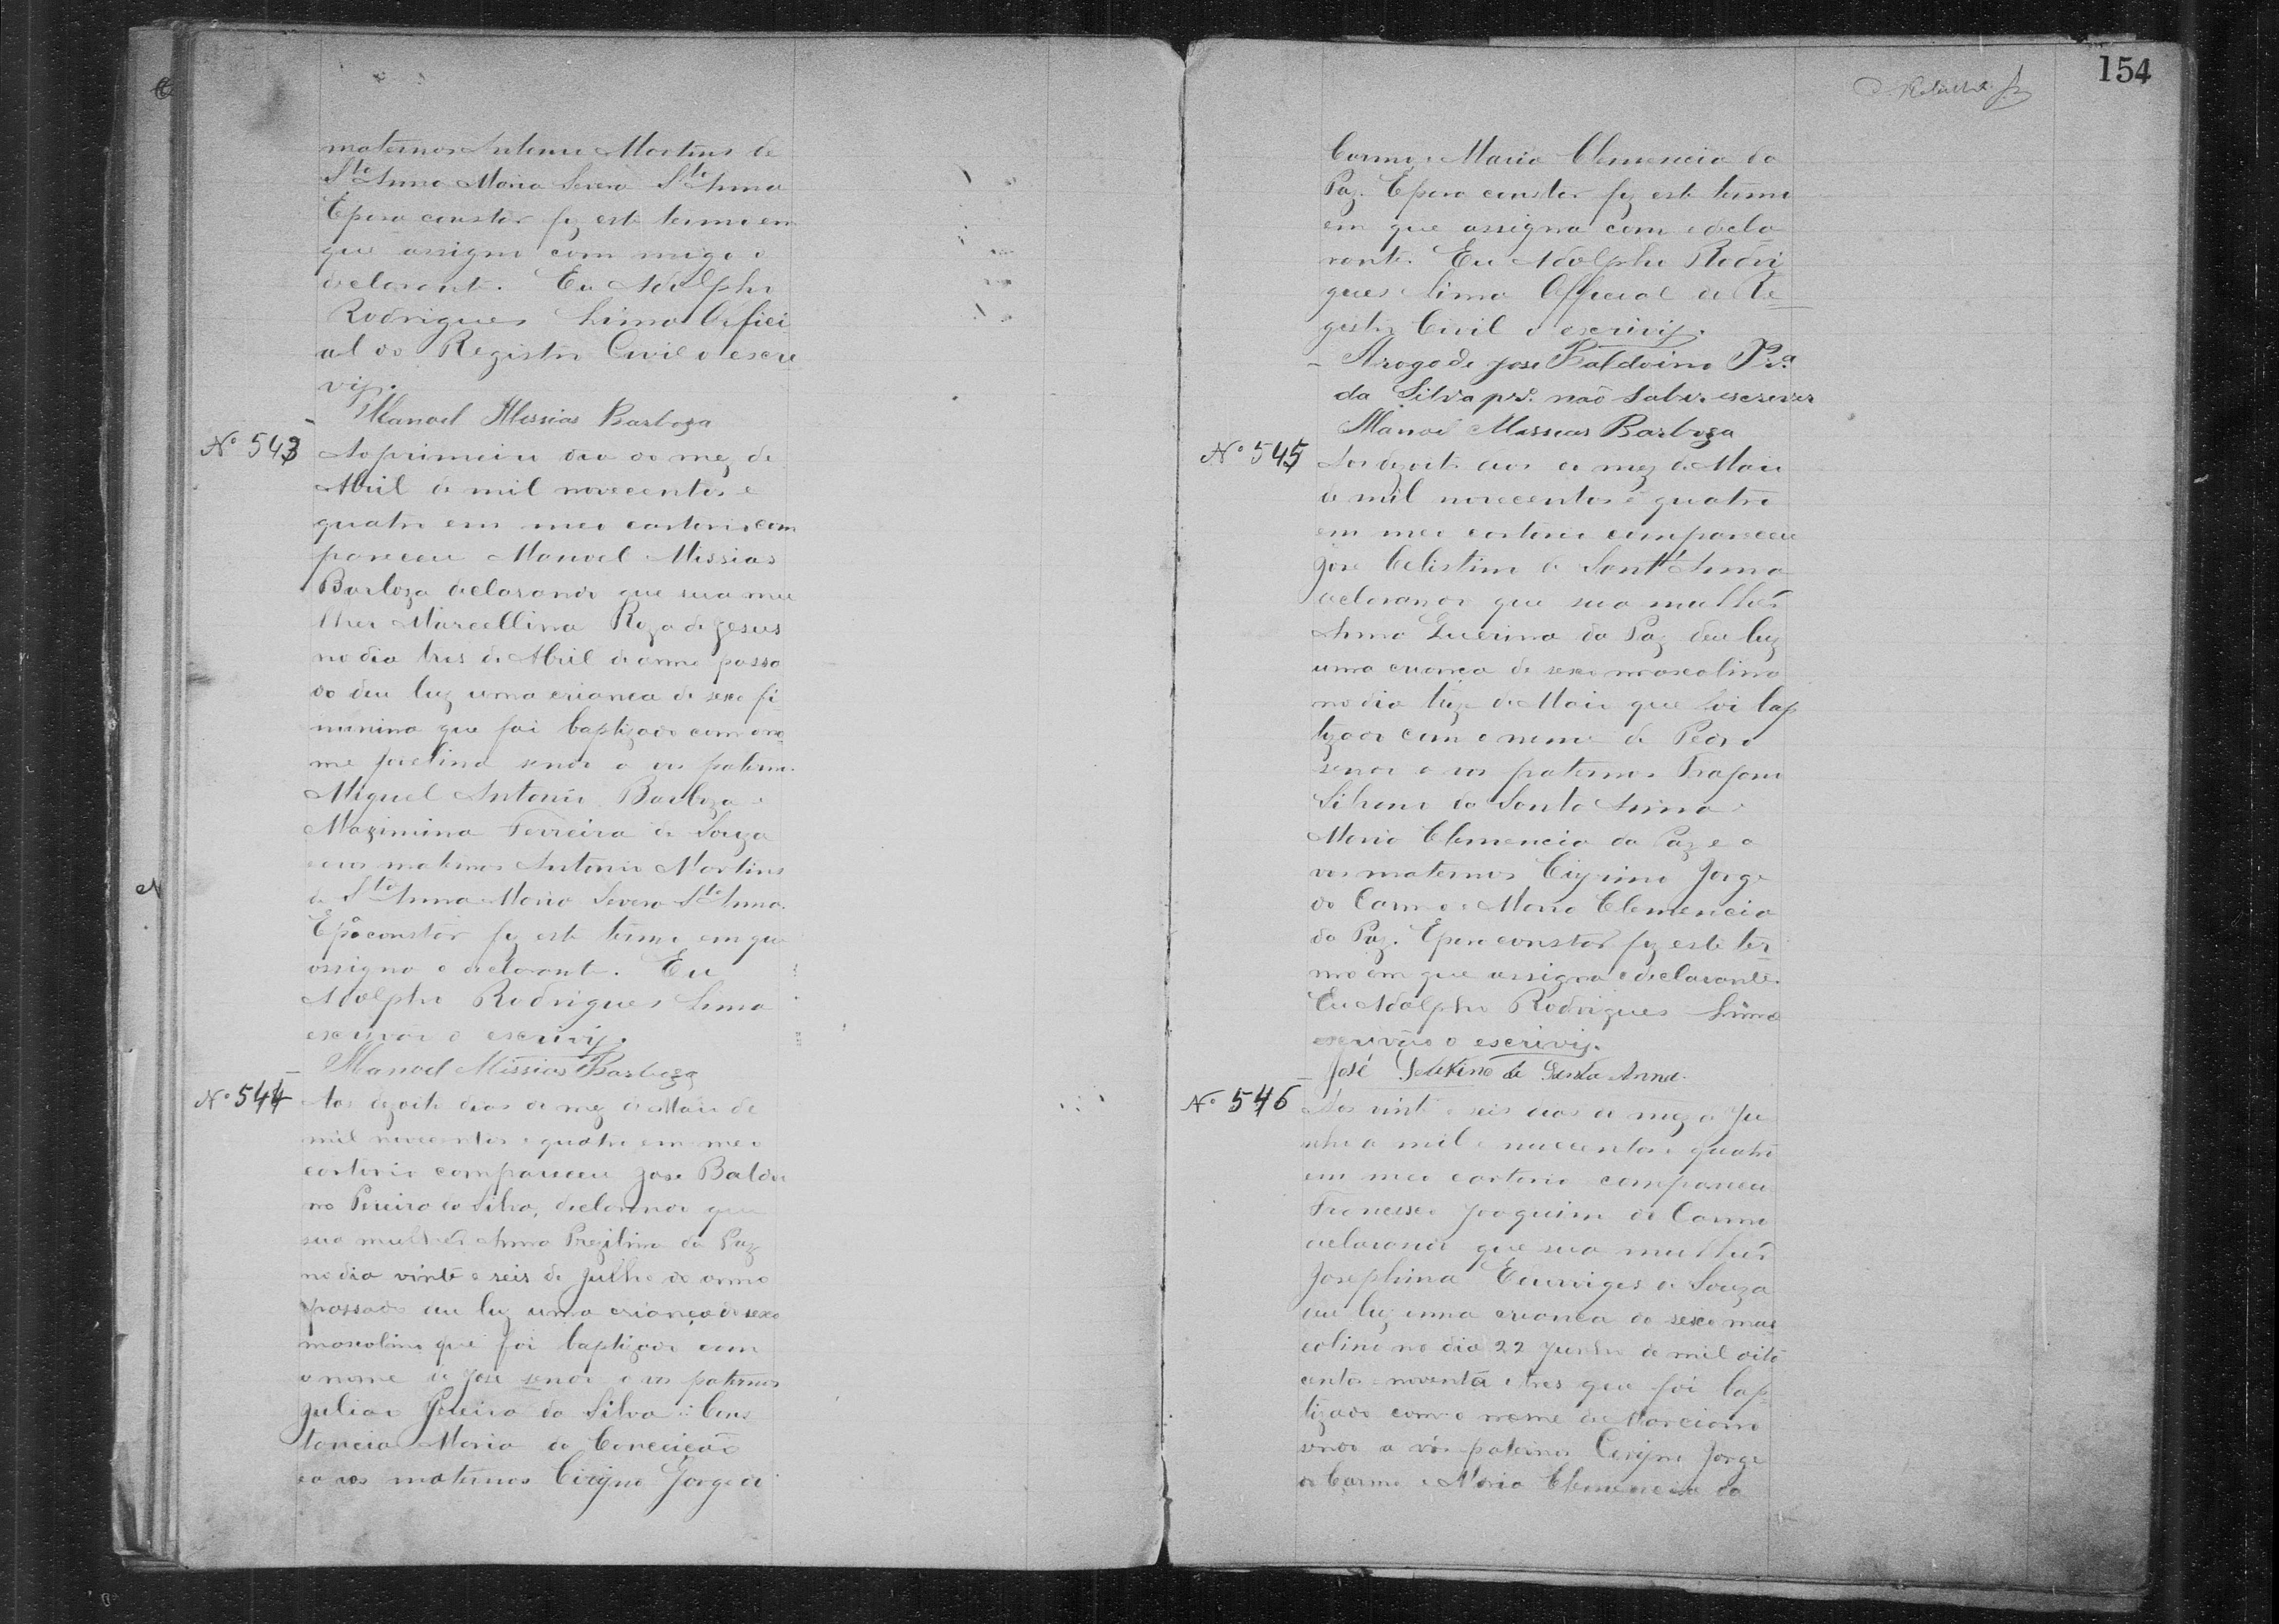 maternos Antonio Martins de
Sta Anna Maria Severa Sta Anna
E para constar fiz este termo em
que assigno com migo o
declarante. Eu Adolpho
Rodrigues Lima Offici
al do Registro Civil o escre
vij.
Manoel Messias Barboza
No 543
Ao primeiro dia do mez de
Abril de mil novecentos e
quatro em meo cartorio com
pareceu Manoel Missias
Barboza declarando que sua mu
lher Marcellina Roza de Jesus
no dia tres de Abril do anno passa
do deu luz uma crianca de sexo fi
minino que foi baptizado com o no
me Jovelina sendo a vos paternos
Miguel Antonio Barboza e
Maximina Ferreira de Souza
e vos maternos Antonio Martins
de Sta Anna Maria Severa Sta Anna.
E pa constar fiz este termo em que
assigna o declarante. Eu
Adolpho Rodrigues Lima
escrivão o escrivij.
Manoel Missias Barboza
No 544
Aos dezoito dias do mez de Maio de
mil novecentos e quatro em meo
cartorio compareceu Jose Baldoi
no Pereira da Silva, declarando que
sua mulher Anna da Paz
no dia vinte e seis de Julho do anno
passado deu luz uma criança do sexo
mascolino que foi baptizado com
o nome de Jose sendo a vos paternos
Julião Pereira da Silva e Cons
tancia Maria da Conceicão
e a vos maternos Cirijno Jorge do
154
Carmo e Maria Clemencia da
Paz. E para constar fiz este termo
em que assigna com o decla
rante. Eu Adolpho Rodri
gues Lima Official do Re
gistro Civil o escrivij.
A rogo de Jose Baldoino Pra
da Silva por não saber escrever
Manoel Messias Barboza
No 545
Aos dezoito dias do mez de Maio
de mil novecentos e quatro
em meo cartorio compareceu
Jose Celistino de Sant'Anna
declarando que sua mulher
Anna da Paz deu luz
uma criança de sexo mascolino
no dia treze de Maio que foi bap
tizado com o nome de Pedro
sendo a vos paternos Trajano
Silvano da Santa Anna e
Maria Clemencia da Paz e a
vos maternos Cirijno Jorge
do Carmo e Maria Clemencia
da Paz. E para constar fiz este ter
mo em que assigna o declarante.
Eu Adolpho Rodrigues Lima
escrivão o escrivij.
José Selestino de Santa Anna.
No 546
Aos vinte e seis dias do mez de Ju
nho de mil e novecentos e quatro
em meo cartorio compareceu
Francisco Joaquim do Carmo
declarando que sua mulher
Josephina Eduviges de Souza
deu luz uma crianca do sexo mas
colino no dia 22 Junho de mil oito
centos noventa e tres que foi bap
tizado com o nome de Marciano
sendo a vós paternos Cirijno Jorge
do Carmo e Maria Clemencia da